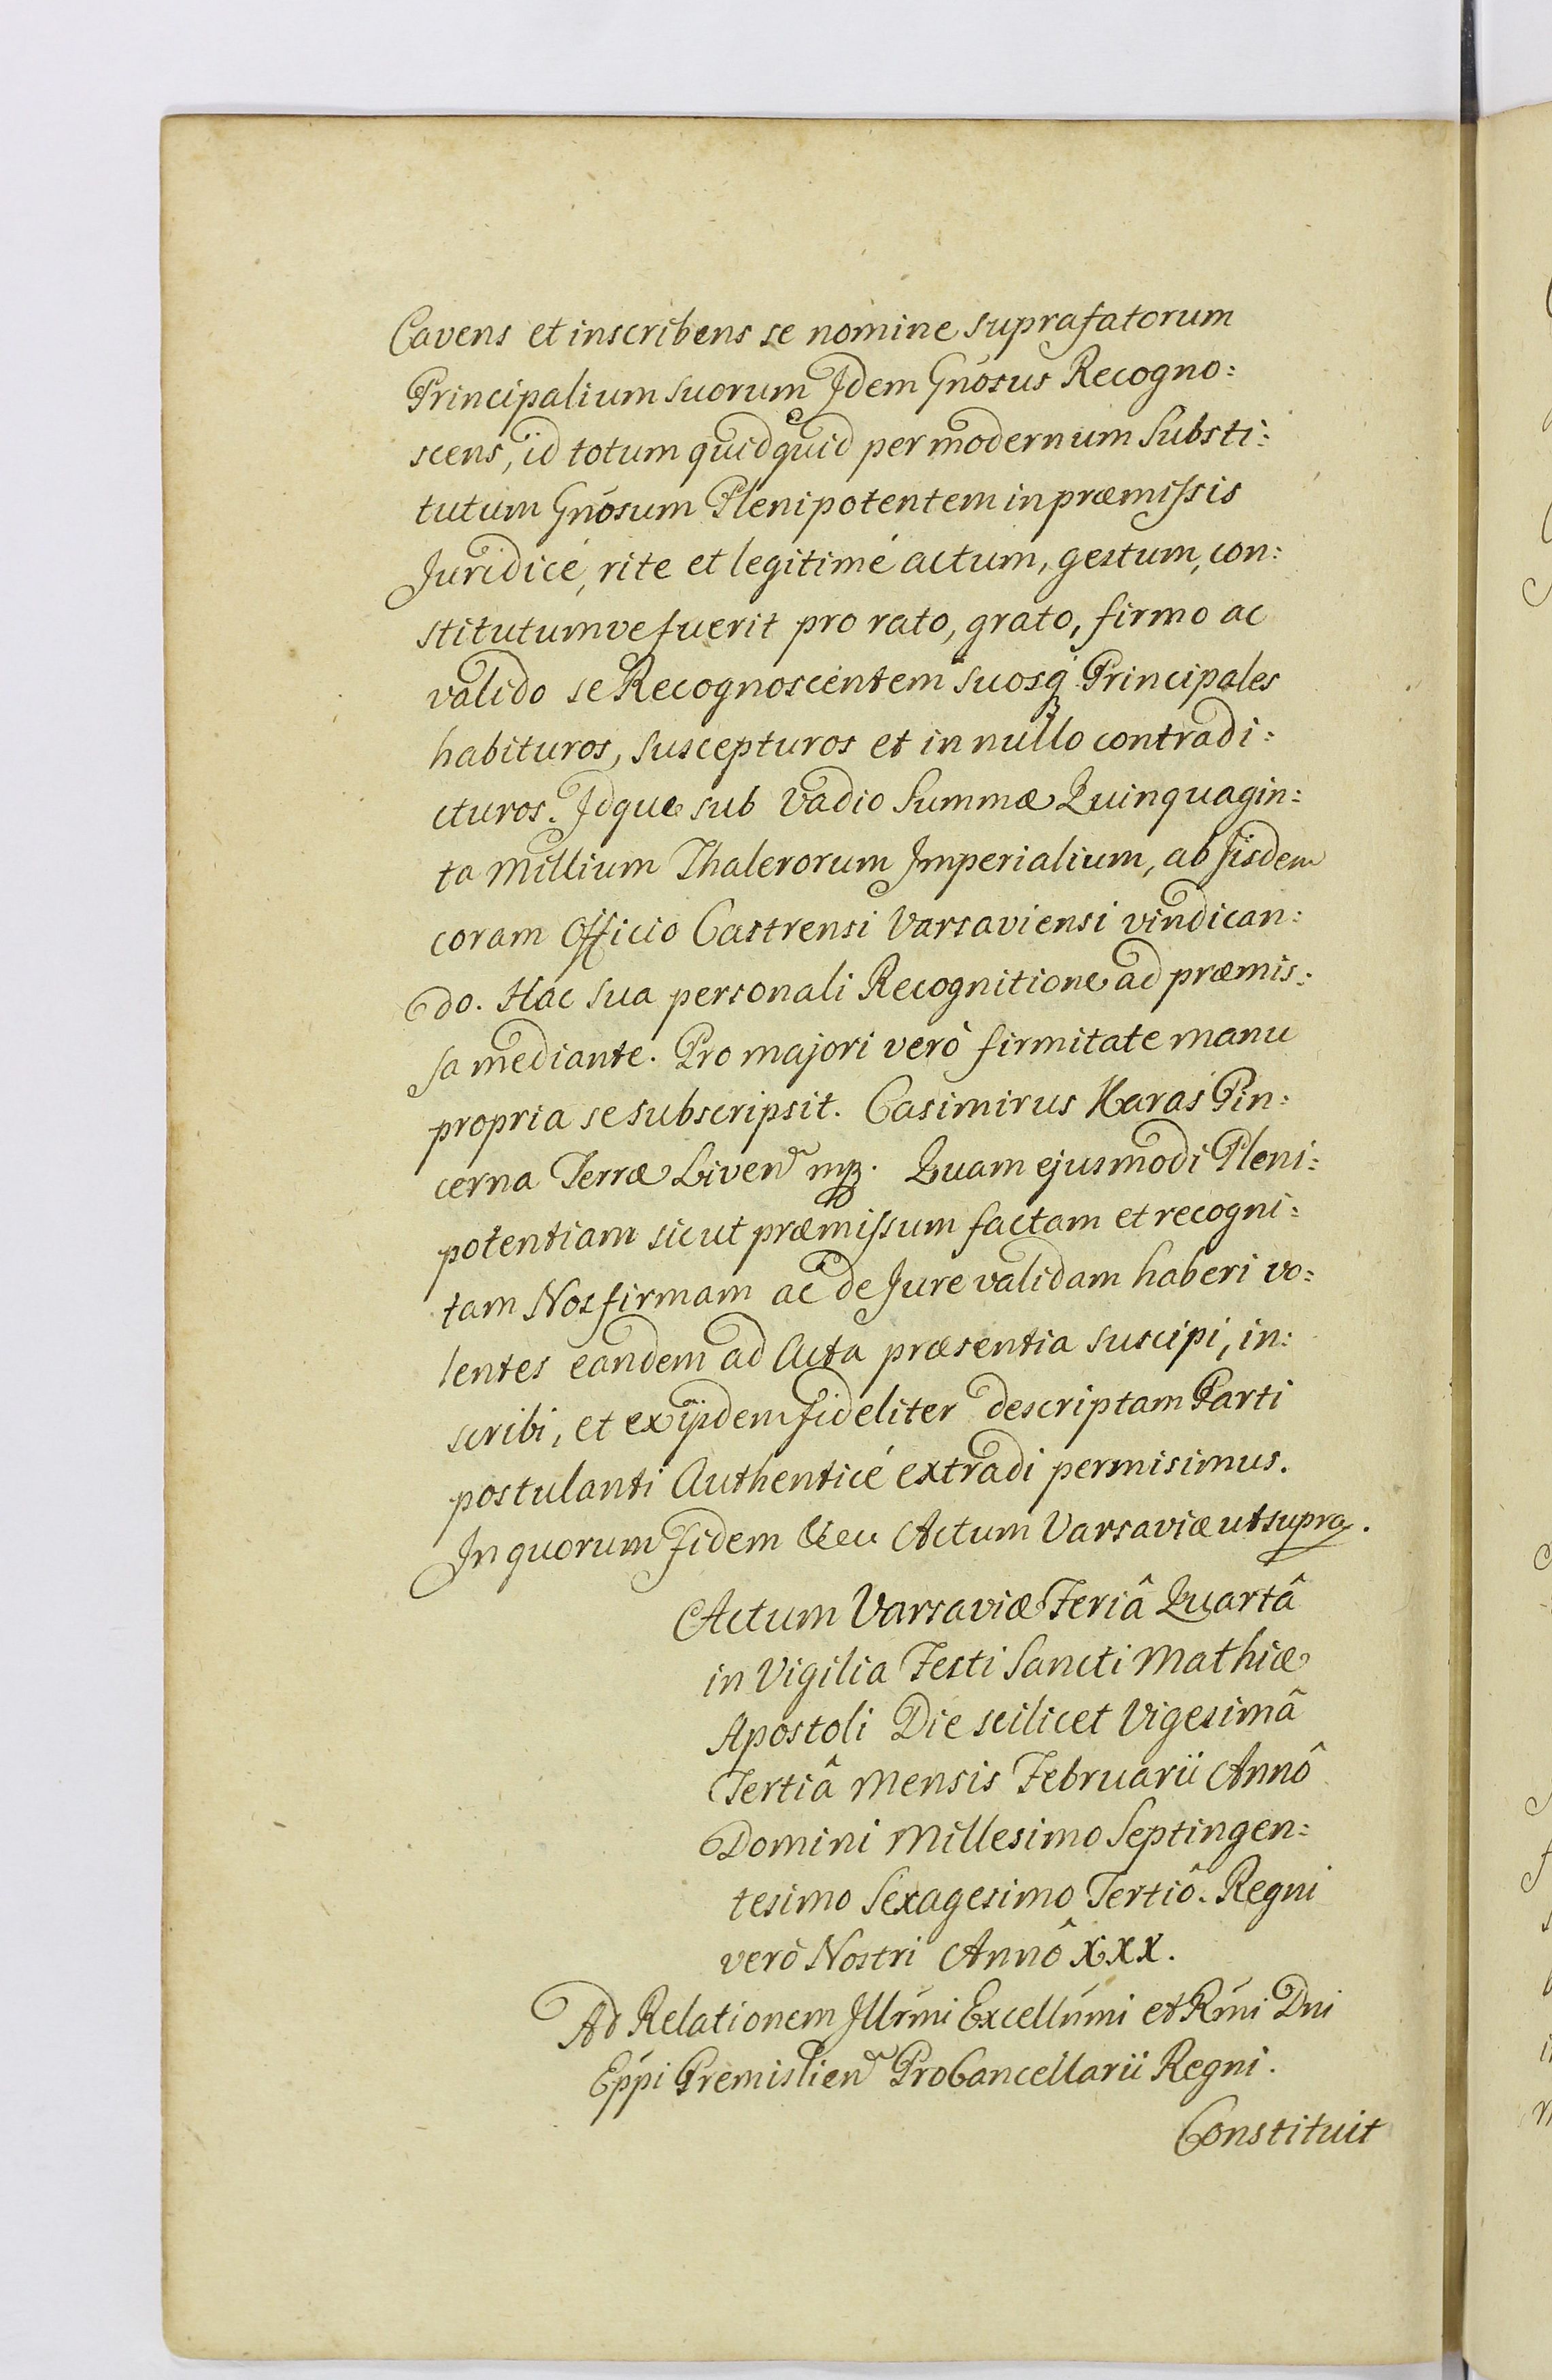 Cavens et inscribens se nomine suprafatorum
Principalium suorum Jdem Gnósus Recogno:
scens, id totum quidquid per modernum Substi:
tutum Gnósum Plenipotentem in præmissis
Juridicé, rite et legitimé actum, gestum, con:
stitutumve fuerit pro rato, grato, firmo ac
valido se Recognoscentem suosq₃ Principales
habituros, suscepturos et in nullo contradi:
cturos. Jdque sub Vadio Summæ Quinquagin:
ta Millium Thalerorum Jmperialium, ab Jisdem
coram Officio Castrensi Varsaviensi vindican:
do. Hac sua personali Recognitione ad præmis:
sa mediante. Pro majori verò firmitate manu
propria se subscripsit. Casimirus Karaś Pin:
cerna Terræ Liven mp. Quam ejusmodi Pleni:
potentiam sicut præmissum factam et recogni:
tam Nos firmam ac de Jure validam haberi vo:
lentes eandem ad Acta præsentia suscipi, in:
scribi, et ex ijsdem fideliter descriptam Parti
postulanti Authenticé extradi permisimus.
Jn quorum fidem &cu Actum Varsaviæ ut supra.
Actum Varsaviæ Feriâ Quartâ
in Vigilia Festi Sancti Mathiæ
Apostoli Die scilicet Vigesimâ
Tertiâ Mensis Februarii Annô
Domini Millesimo Septingen:
tesimo Sexagesimo Tertiô. Regni
verò Nostri Annô XXX.
Ad Relationem Jllrmi Excellmi et Rmi Dni
Eppi Premislien ProCancellarii Regni.
Constituit